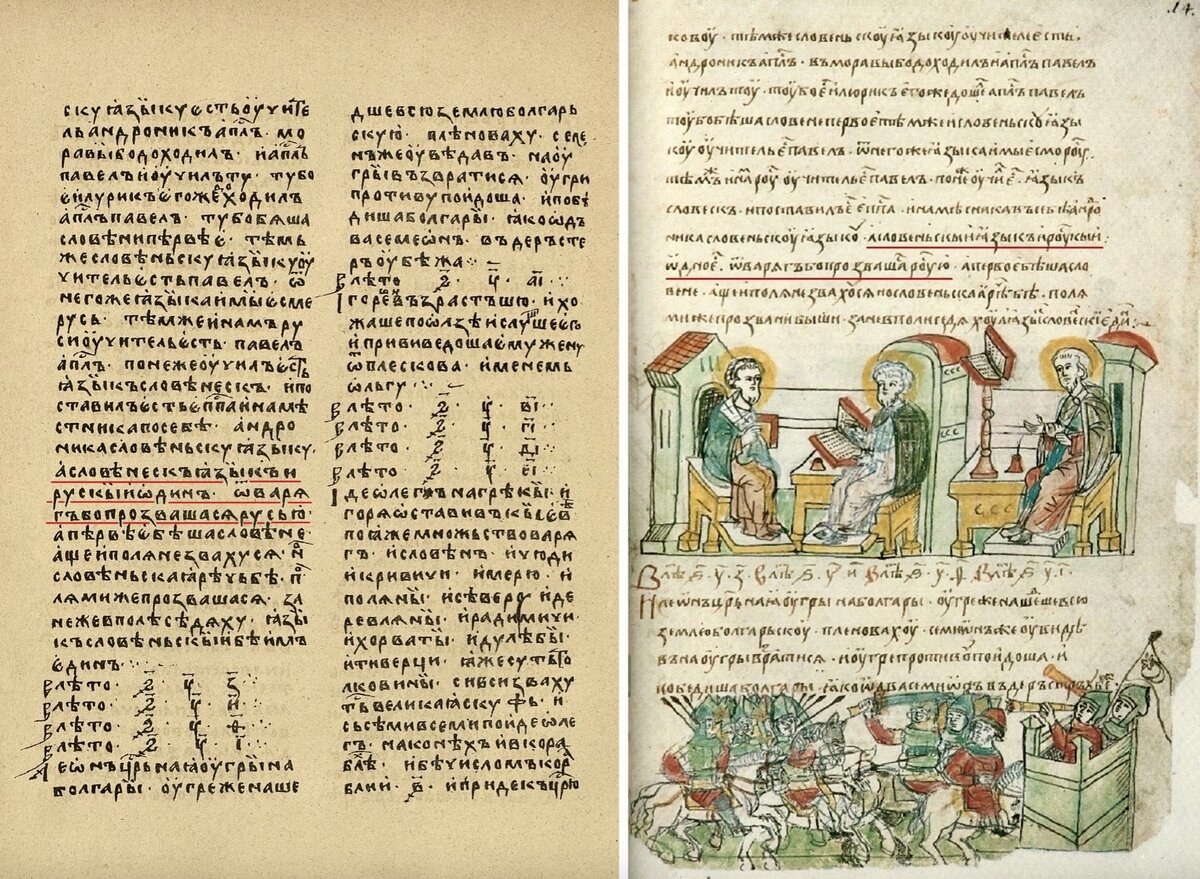 скуꙗзꙑкуєстьоучи́те
льандроникъап҃лъ · мо
равꙑбодоходилъ · иап҃лъ
павелъиоучилъту · тубо
єилурикъєгожедоходилъ
ап҃лъпавелъ · тубобѧша
словѣнипѣрвѣє · тѣмь
жесловѣньскуꙗзꙑкуоу
учительєстьпавелъ · ѿ
негожеꙗзꙑкаимꙑєсме
русь · тѣмжеинамъру
сиоучительєсть павелъ
ап҃лъ · понежеоучилъєсть
ꙗзꙑкъсловѣнескъ · ипо
ставилъєстьєпп҃аинамѣ
стникапосебѣ · андро
никасловѣньскуꙗзꙑку ·
асловѣнескъꙗзꙑкъи
рускꙑиѡдинъ · ѿварѧ
гъбопрозвашасѧрусью ·
апѣрвѣєбѣшасловѣне ·
ащеиполѧнезвахусѧ · н
словѣньскаꙗрѣчьбѣ · п
лѧмижепрозвашасѧ · за
нежевполѣсѣдѧху · ꙗзꙑ
късловѣньскꙑибѣимъ
єдинъ ·
влѣто · ҂ѕ҃ · у҃ · з҃ ·
влѣто · ҂ѕ҃ · у҃ · и҃ ·
влѣто · ҂ѕ҃ · у҃ · ѳ҃ ·
влѣто · ҂ѕ҃ · у҃ · і҃ ·
леѡнъцр҃ьнаꙗоугрꙑна
болгарꙑ · оугреженаше
дшевсюземлюболгарь
скую · плѣноваху · семе
нъжеоувѣдавъ · наоу
грꙑвъзвратисѧ · оугри
противупоидоша · ипобѣ
дишаболгарꙑ · ꙗкоѡдъ
васемеѡнъ · въдеръстє
ръоубѣжа ·
влѣто · ҂ѕ҃ · у҃ · аі҃ ·
игоревѣвъзрастъшю · ихо
жашепоѡлзѣислушаєго
ипрививедошаємужену
ѿплескова · именемь
ѡльгу ·
влѣто · ҂ѕ҃ · у҃ · ві҃ ·
влѣто · ҂ѕ҃ · у҃ · гі҃ ·
влѣто · ҂ѕ҃ · у҃ · ді҃ ·
влѣто · ҂ѕ҃ · у҃ · єі҃ ·
идеѡлегънагрѣкꙑ · и
горѧѡставивъкꙑєвѣ
поꙗжемножьствоварѧ
гъ · исловѣнъ · ичюди
икривичи · имерю · и
полѧнꙑ · исѣверо · иде
ревлѧнꙑ · ирадимичи ·
ихорватꙑ · идулѣбꙑ ·
итиверци · ꙗжесутьто
лковинꙑ · сивсизваху
тьвеликаꙗскуфь · и
сьсѣмивсемипоидеѡле
гъ · наконѣхъивкора
блѣ · ибѣчисломъкор
блии · в҃ · ипридекъцр҃ю
14 ·
ковоу · тѣмжесловеньскоуꙗзыкоуоучителеєсть ·
андроникап҃лъ · въморавыбодоходилъиап҃лъпавелъ
иоучилътоу · тоубоєилюрикъєгожедошеап҃лъпавелъ
тоубобѣшасловенепервоє · тѣмжеисловеньскоуꙗзы
коуоучительєпавелъ · ѿнегожеꙗзыкаимыєсмороу ·
тѣмъинамъроуоучительєпавелъ · понеоучиє · ꙗзыкъ
словескъ · ипоставилъєєп҃па · инамѣсникавъсебѣандро
никасловеньскоуꙗзыкоу · асловеньскыиꙗзыкъироускыи
ѡдноє · ѿварꙗгъбопрозвашароусью · апервоебѣшасло
вене · ащеиполꙗнезвахосѧнословеньскаꙗрѣчьбѣ · полꙗ
мижепрозванибыши · занеѣвполиседѧхоуꙗзысловескиєди
Влѣ · ѕ҃ · у҃ · з҃ · влѣ · ѕ҃ · у҃ · и҃ · влѣ · ѕ҃ · у҃ · ѳ҃ · влѣ · ѕ҃ · у҃ · і҃ ·
Илеѡнъцр҃ьнаꙗоугрынаболгары · оугреженашешевсю
землюболгарьскоу · пленовахоу · семиѡнъжеоувидѣ
въна оугрывратисѧ · иоугрепротивоупоидоша · и
победишаболгары · ꙗкоѡдвасемиѡнъвъдеръстръбѣ